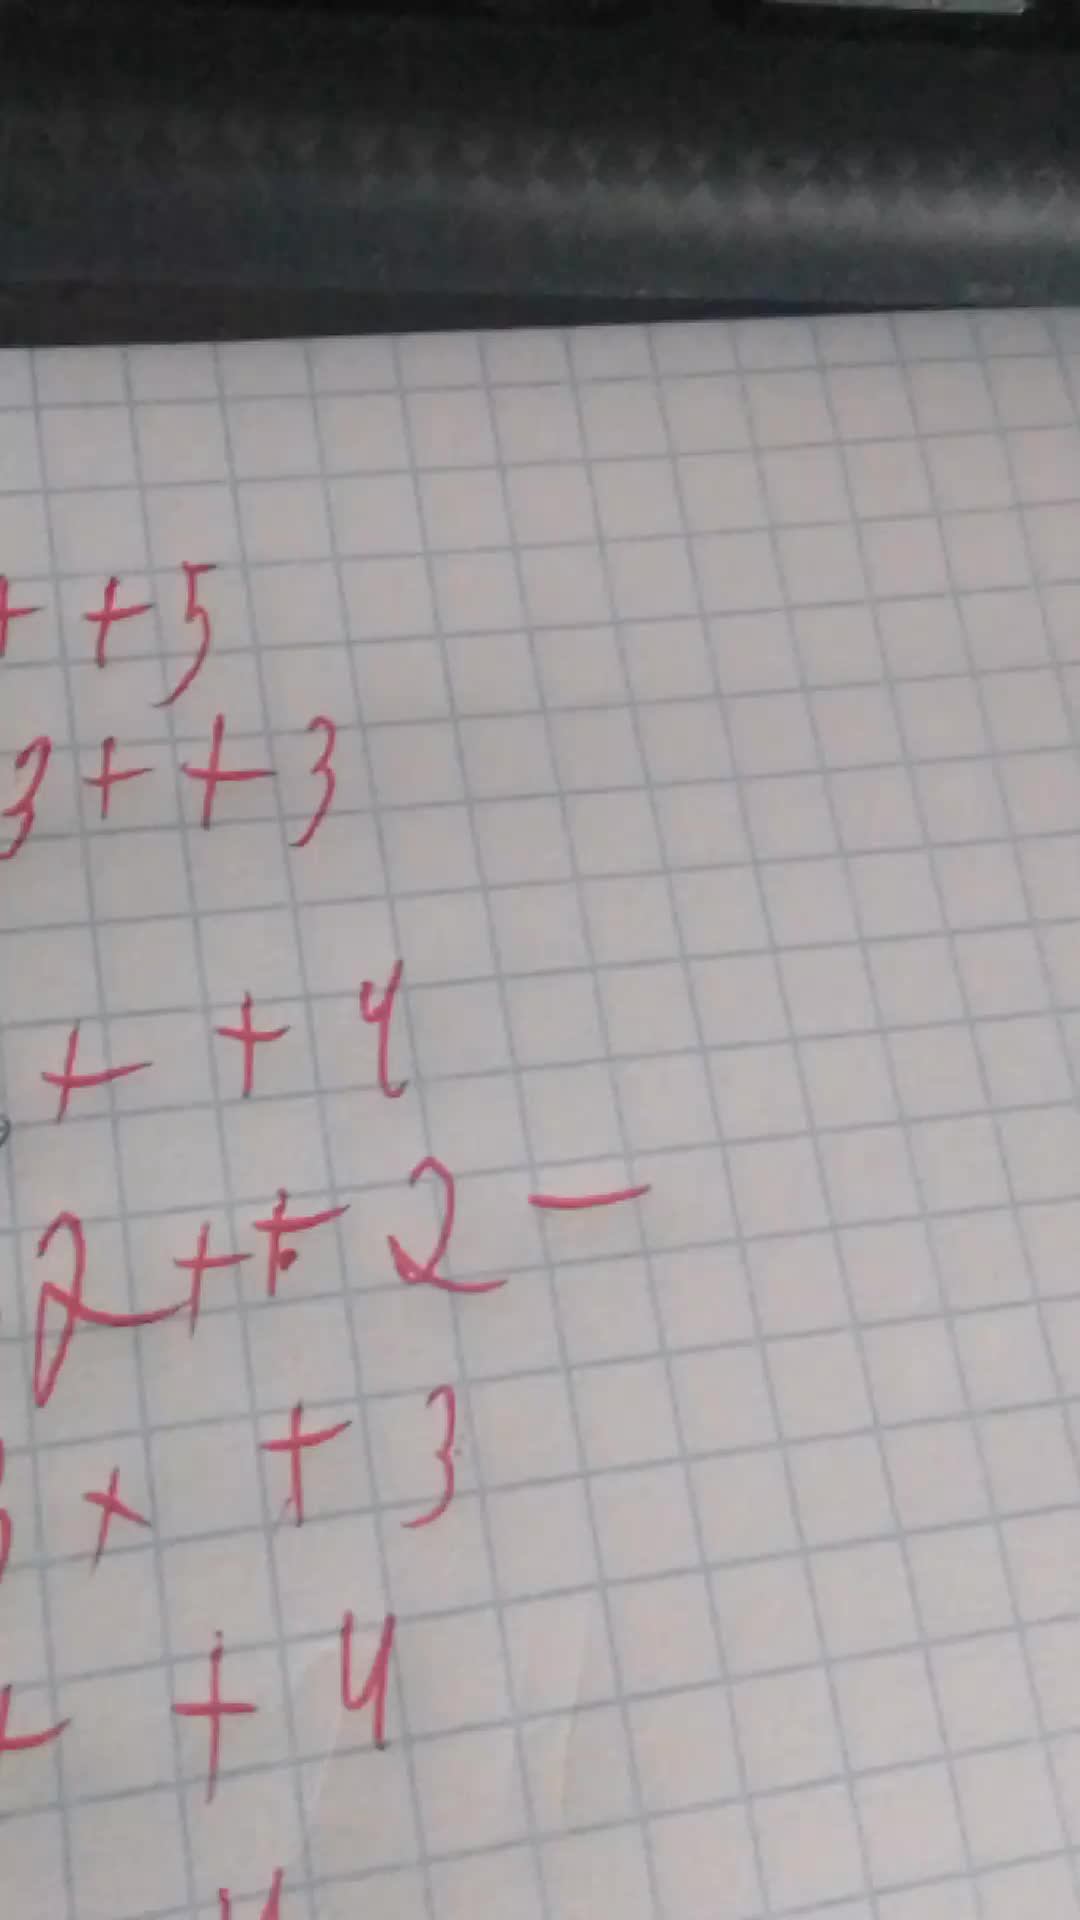 + + 5
3 + + 3
+ + 4
2 + + 2 -
3 x + 3
+ + 4
4